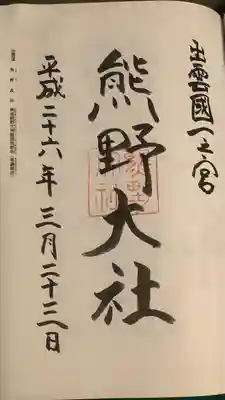 出雲國一之宮
熊野大社
平成二十六年三月二十三日